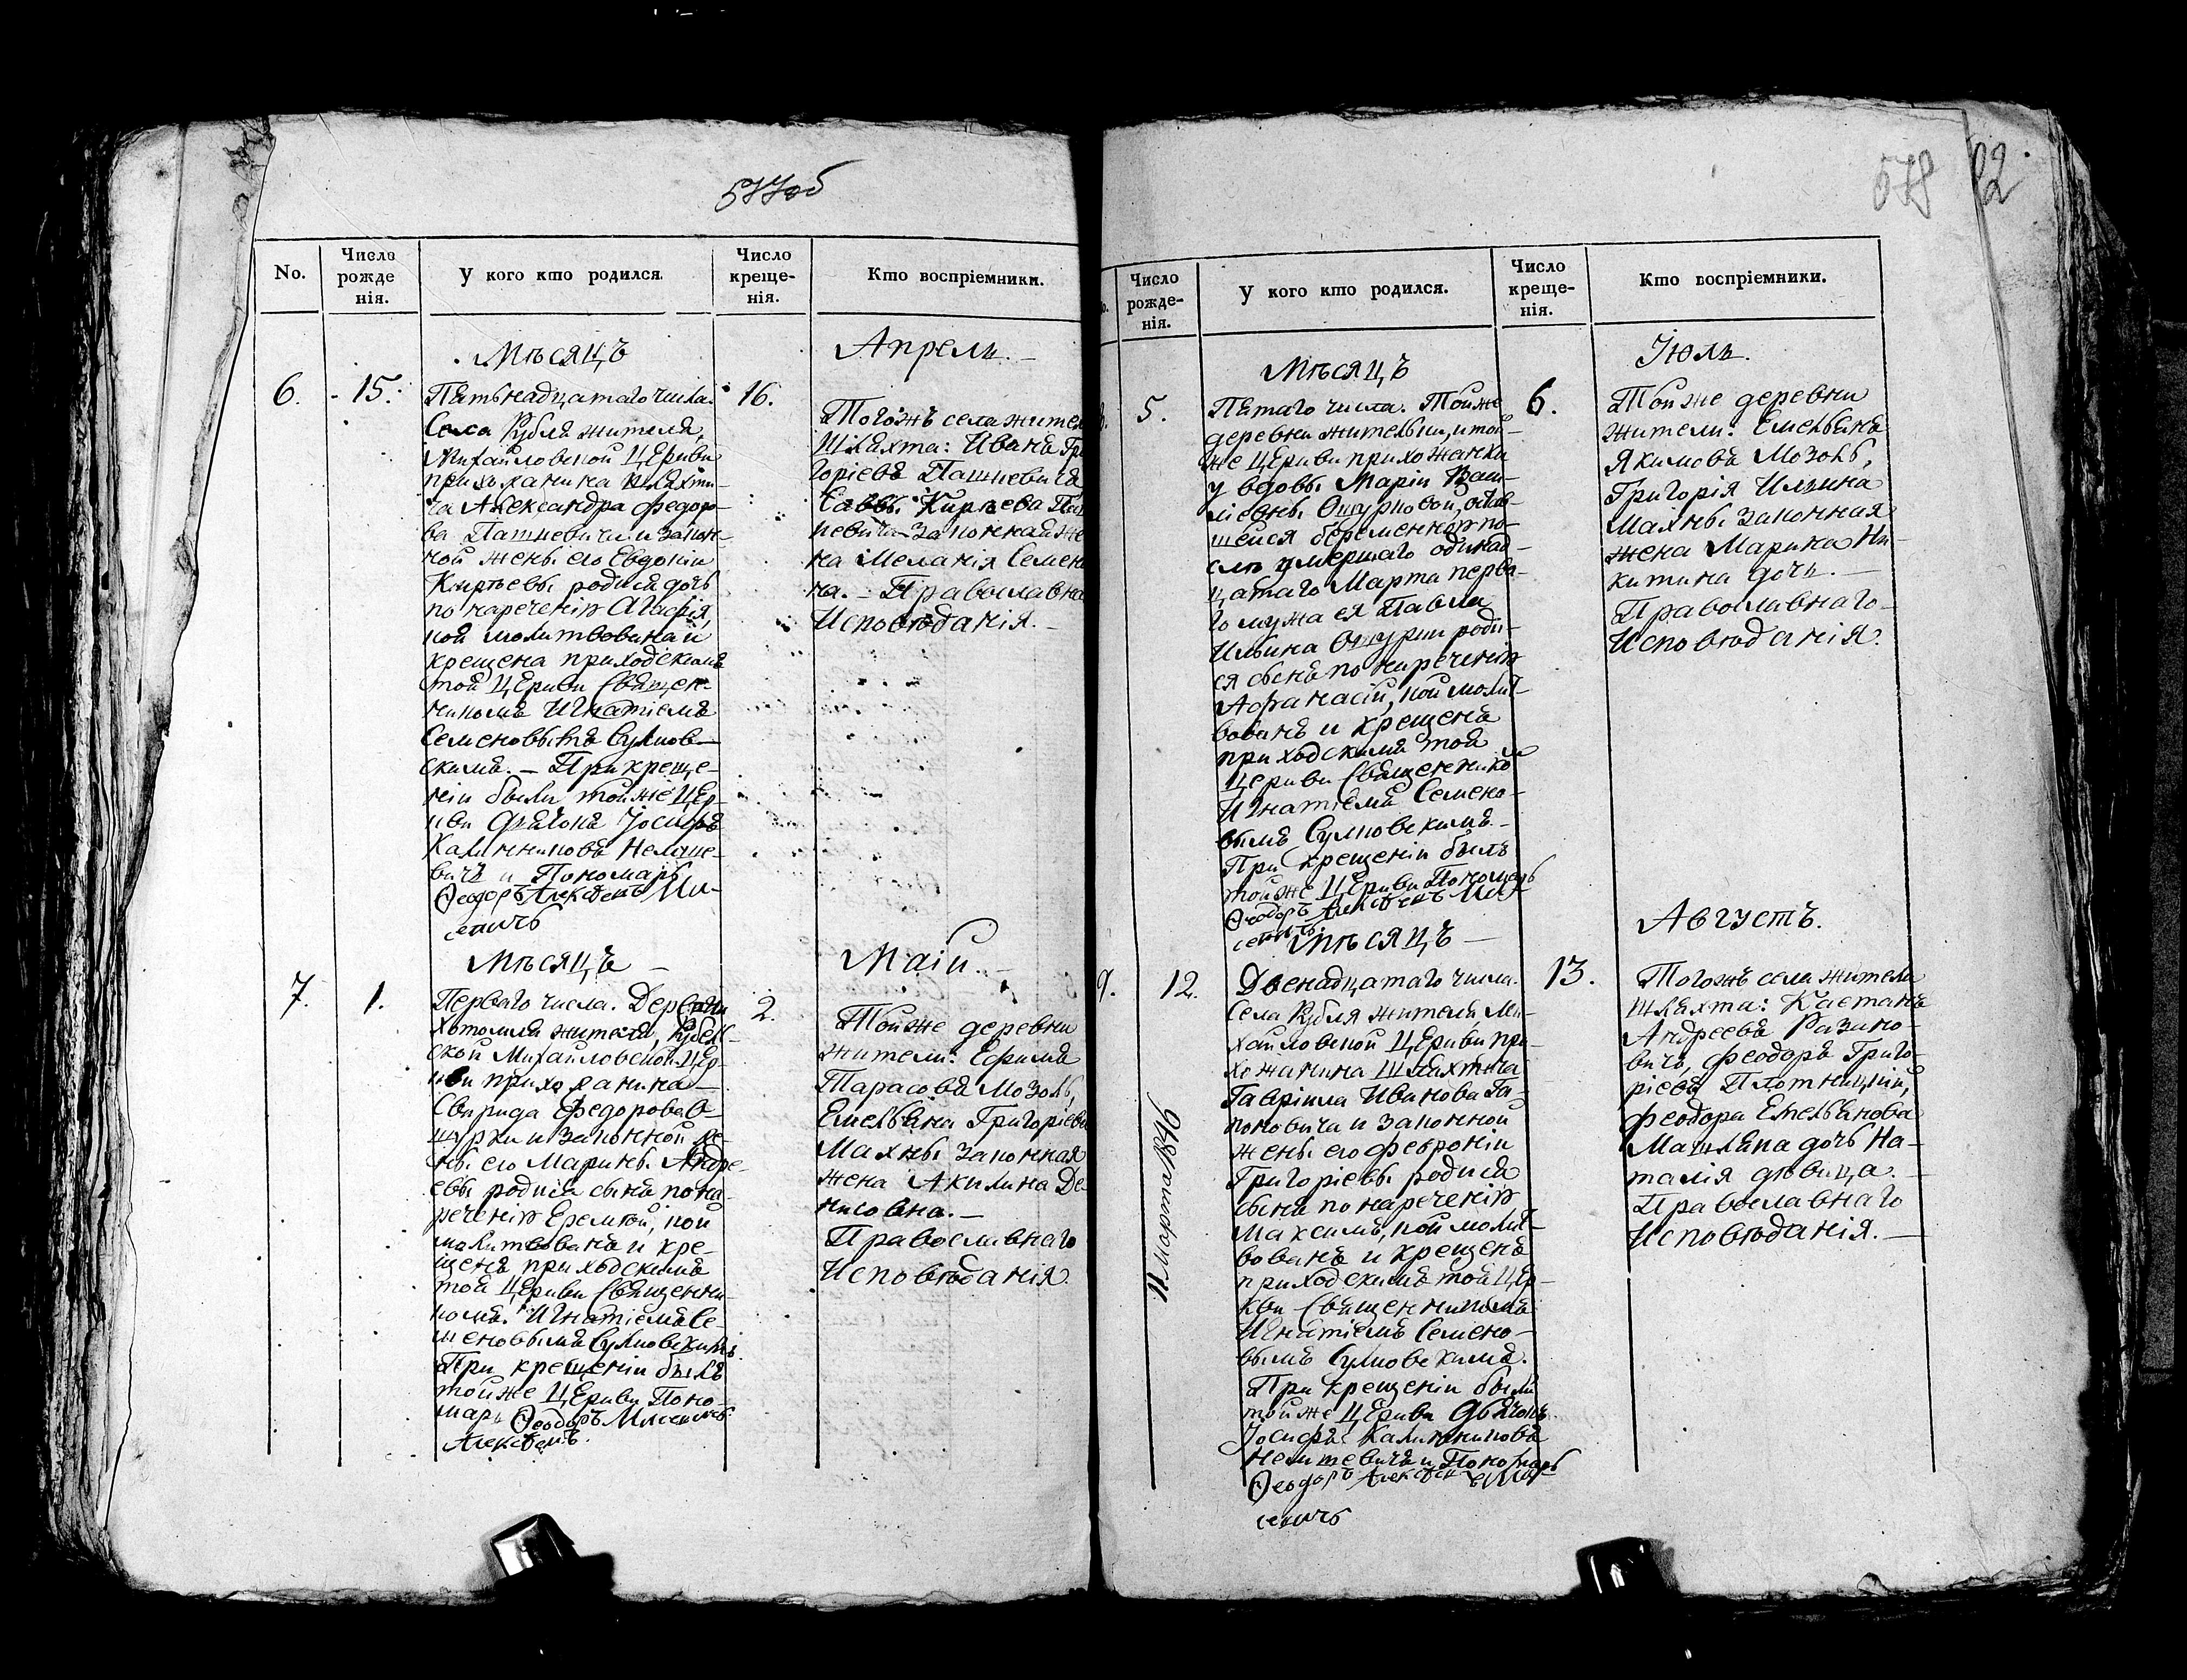 577об
No.
Число рожденія.
У кого кто родился.
Число крещенія.
Кто воспріемники.
Мѣсяцъ
Апрель.
6.
15.
Пятьнадцатаго числа.
Села Рубля жителя,
Михайловской Церкви
прихожанина шляхти-
ча Александра Федоро-
ва Пашкевича и закон-
ной жены его Евдокіи
Кирѣевы родися дочь
по нареченію Агафія,
кой молитвована и
крещена приходскимъ
той Церкви Священ-
никомъ Игнатіемъ
Семеновымъ Сулков-
скимъ. — При креще-
ніи были той же Цер-
кви Дьячокъ Іосифъ
Калинниковъ
и Пономарь
Феодоръ Алексѣевъ
16.
Тогожъ села жители
Шляхта: Иванъ Гри
горіевъ Пашкевичъ
Саввы Кирѣева Паш
кевича законная же
на Меланія Семено
на. — Православна
Исповѣданія. —
Мѣсяцъ —
Маій. —
7.
1.
Перваго числа. Деревни
Хотомля жителя, Рубель-
ской Михайловской Цер-
кви прихожанина —
Свирида Федорова О-
щурки и законной же-
ны его Марины Андре-
евы родися сынъ по на-
реченію Еремѣй, кой
молитвованъ и кре-
щенъ приходскимъ
той Церкви Священни-
комъ Игнатіемъ Се-
меновымъ Сулковскимъ
При крещеніи былъ
той же Церкви Поно-
марь Феодоръ
Алексѣевъ.
2.
Той же деревни
жители: Ефимъ
Тарасовъ Мозоль,
Емельяна Григоріева
Махны законная
жена Акилина Де-
нисовна. —
Православнаго
Исповѣданія.
578
82
Число рожде-нія.
У кого кто родился.
Число креще-нія.
Кто воспріемники.
Мѣсяцъ
Іюль.
5.
Пятаго числа. Той же
деревни жительки, и той-
же Церкви прихожанки
у вдовы Маріи
Ощурковой, остав-
шейся беременною по-
слѣ умершаго одинад-
цатаго Марта перва-
го мужа ея Павла
Ильина Ощурки роди-
ся сынъ по нареченію
Афанасій, кой молит-
вованъ и крещенъ
приходскимъ той
Церкви Священникомъ
Игнатіемъ Семено-
вымъ Сулковскимъ. —
При крещеніи былъ
той же Церкви Пономарь
Феодоръ Алексѣевъ
6.
Той же деревни
жители: Емельянъ
Якимовъ Мозоль,
Григорія Ильина
Махны законная
жена Марина Ни-
китина дочь. —
Православнаго
Исповѣданія.
Мѣсяцъ —
Августъ.
9.
12.
Двенадцатаго числа.
Села Рубля жителя Ми-
хайловской Церкви при-
хожанина Шляхтича
Гавріила Иванова Га-
поновича и законной
жены его Февроніи
Григоріевы родися
сынъ по нареченію
Максимъ, кой молит-
вованъ и крещенъ
приходскимъ той Цер-
кви Священникомъ
Игнатіемъ Семено-
вымъ Сулковскимъ.
При крещеніи были
той же Церкви Дьячокъ
Іосифъ Калинниковъ
и Пономарь
Феодоръ Алексѣевъ
13.
Тогожъ села жители
Шляхта: Каетанъ
Андреевъ Разино-
вичъ, Феодоръ Григо-
ріевъ Плотницкій,
Феодора Емельянова
Машляка дочь На-
талія дѣвица. —
Православнаго
Исповѣданія. —